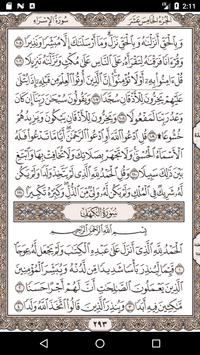 2:11
الجزء الخامس عشر
سورة الإسراء
وَبِالْحَقِّ أَنزَلْنَاهُ وَبِالْحَقِّ نَزَلَ وَمَا أَرْسَلْنَاكَ إِلَّا مُبَشِّرًا وَنَذِيرًا ١٠٥
وَقُرْآنًا فَرَقْنَاهُ لِتَقْرَأَهُ عَلَى النَّاسِ عَلَى مُكْثٍ وَنَزَّلْنَاهُ تَنزِيلًا ١٠٦
قُلْ آمِنُوا بِهِ أَوْ لَا تُؤْمِنُوا إِنَّ الَّذِينَ أُوتُوا الْعِلْمَ مِن قَبْلِهِ إِذَا يُتْلَى
عَلَيْهِمْ يَخِرُّونَ لِلْأَذْقَانِ سُجَّدًا ١٠٧ وَيَقُولُونَ سُبْحَانَ رَبِّنَا إِن كَانَ
وَعْدُ رَبِّنَا لَمَفْعُولًا ١٠٨ وَيَخِرُّونَ لِلْأَذْقَانِ يَبْكُونَ وَيَزِيدُهُمْ
خُشُوعًا ۩ ١٠٩ قُلِ ادْعُوا اللَّهَ أَوِ ادْعُوا الرَّحْمَٰنَ أَيًّا مَّا تَدْعُوا فَلَهُ
الْأَسْمَاءُ الْحُسْنَى وَلَا تَجْهَرْ بِصَلَاتِكَ وَلَا تُخَافِتْ بِهَا وَابْتَغِ
بَيْنَ ذَٰلِكَ سَبِيلًا ١١٠ وَقُلِ الْحَمْدُ لِلَّهِ الَّذِي لَمْ يَتَّخِذْ وَلَدًا وَلَمْ يَكُن
لَّهُ شَرِيكٌ فِي الْمُلْكِ وَلَمْ يَكُن لَّهُ وَلِيٌّ مِّنَ الذُّلِّ وَكَبِّرْهُ تَكْبِيرًا ١١١
سورة الكهف
بِسْمِ اللَّهِ الرَّحْمَٰنِ الرَّحِيمِ
الْحَمْدُ لِلَّهِ الَّذِي أَنزَلَ عَلَى عَبْدِهِ الْكِتَابَ وَلَمْ يَجْعَل لَّهُ عِوَجًا ١
قَيِّمًا لِّيُنذِرَ بَأْسًا شَدِيدًا مِّن لَّدُنْهُ وَيُبَشِّرَ الْمُؤْمِنِينَ
الَّذِينَ يَعْمَلُونَ الصَّالِحَاتِ أَنَّ لَهُمْ أَجْرًا حَسَنًا ٢
مَّاكِثِينَ فِيهِ أَبَدًا ٣ وَيُنذِرَ الَّذِينَ قَالُوا اتَّخَذَ اللَّهُ وَلَدًا ٤
٢٩٣